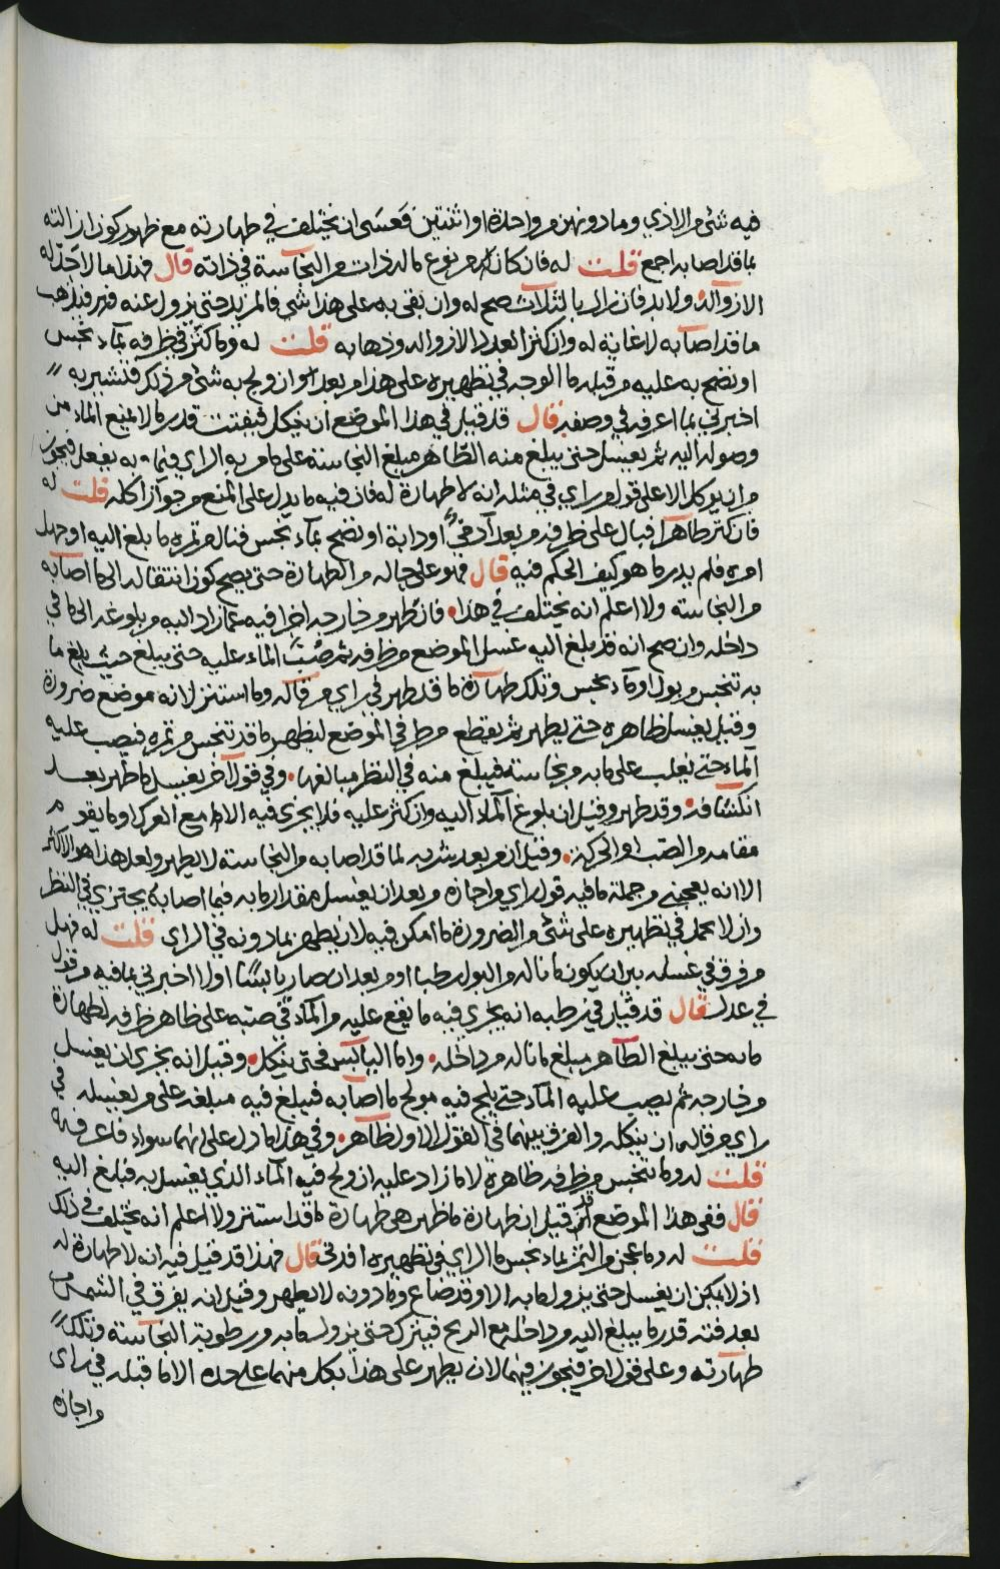 فيه شيء من الاذي وما دونهن من واحدة او اثنتين فعسى ان يختلف في طهارته مع ظهور كون ازالته
لما قد اصابه اجمع قلت له فان كان من نوع ما له ذات من النجاسة في ذاته قال فهذا ما لا حد له
الا زواله ولا بد فان زال بالثلاث صح له وان بقي به على هذا شي فالمزيد حتى يزول عنه فيذهب
ما قد اصابه لا غاية له وان كثر العدد الا زواله وذهابه قلت له وما كنز في ظرفه بماء نجس
او نضح به عليه من قبله ما الوجه في تطهيره على هذا من بعد او ان ولج به شيء من ذلك فتشير به
اخبرني بما اعرفه في وصفه قال قد قيل في هذا الموضع ان ينكل فيفتت قدر ما لا يمنع الماء من
وصوله اليه ثم يغسل حتى يبلغ منه الطاهر مبلغ النجاسة على ما مر به الراي فيما به يفعل فيجوز
من ان يوكل الا على قول من راي في مثله انه لا طهارة له فان فيه ما يدل على المنع من جواز اكله قلت له
فان كنز طاهرا فبال على ظرفه من بعد آدمي او دابة او نضح بماء نجس فنال من تمره ما بلغ اليه او جهل
امره فلم يدر ما هو كيف الحكم فيه قال فهو على حاله من الطهارة حتى يصح كون انتقاله الى ما اصابه
من النجاسة ولا اعلم انه يختلف في هذا فان طهر من خارجه اجزا فيه عما زاد اليه من بلوغه الى ما في
داخله وان صح انه قد بلغ اليه غسل الموضع من ظرفه ثم صبّ الماء عليه حتى يبلغ حيث بلغ ما
به تنجس من بول او ماء نجس وتلك طهارة ما قد طهر في راي من قاله وما استتر لانه موضع ضرورة
وقيل يغسل ظاهره حتى يطهر ثم يقطع من ظرفه الموضع ليظهر ما قد تنجس من تمره فيصب عليه
الماء حتى يغلب على ما به من نجاسة فيبلغ منه في النظر مبالغها وفي قول آخر يغسل ما ظهر بعد
انكشافه وقد طهر وقيل ان بلوغ الماء اليه وان كثر عليه فلا يجزى فيه الا مع العرك او ما يقوم
مقامه من الصب او الحركة وقيل ان من بعد شربه لما قد اصابه من النجاسة لا يطهر ولعل هذا هو الاكثر
الا انه يعجبني من جملة ما فيه قول من راي من اجازه من بعد ان يغسل مقدار ما به فيما اصابه يجتزي في النظر
وان لا يحمل في تطهيره على شيء من الضرورة ما امكن فيه لان يطهر بما دونه في الراي قلت له فهل
من فرق في غسله بين ان يكون ما ناله من البول رطبا او من بعد ان صار يابسًا اولا اخبرني بما فيه من قول
في عدل قال قد قيل في رطبه انه يجزي فيه ما يقع عليه من الماء في صبه على ظاهر ظرفه لطهارة
ما به حتى يبلغ الطاهر مبلغ ما ناله من داخله واما اليابس فحتى ينكل وقيل انه يجزى ان يغسل
من خارجه ثم يصب عليه الماء حتى يلج فيه مولج ما اصابه فيبلغ فيه مبلغه على من يغسله في
راي من قاله ان ينكله والفرق بينهما في القول الاول ظاهر وفي هذا ما دل على انهما سواء فاعرفه
قلت له وما تنجس من ظرفه ظاهره لا ما زاد عليه ان ولج فيه الماء الذي يغسل به فبلغ اليه
قال ففي هذا الموضع قد قيل ان طهارة ما ظهر هي طهارة ما قد استتر ولا اعلم انه يختلف في ذلك
قلت له وما عجن من التمر بماء نجس ما الراي في تطهيره افدني قال فهذا قد قيل فيه انه لا طهارة له
اذ لا يمكن ان يغسل حتى يزول ما به الا وقد ضاع وما دونه لا يطهر وقيل انه يفرق في الشمس
بعد فته قدر ما يبلغ اليه من داخله مع الريح فيترك حتى يزول ما به من رطوبة النجاسة وتلك
طهارته وعلى قول آخر فيجوز فيهما لان يطهر على هذا بكل منهما على حده الا ما قبله في راى
من اجازه